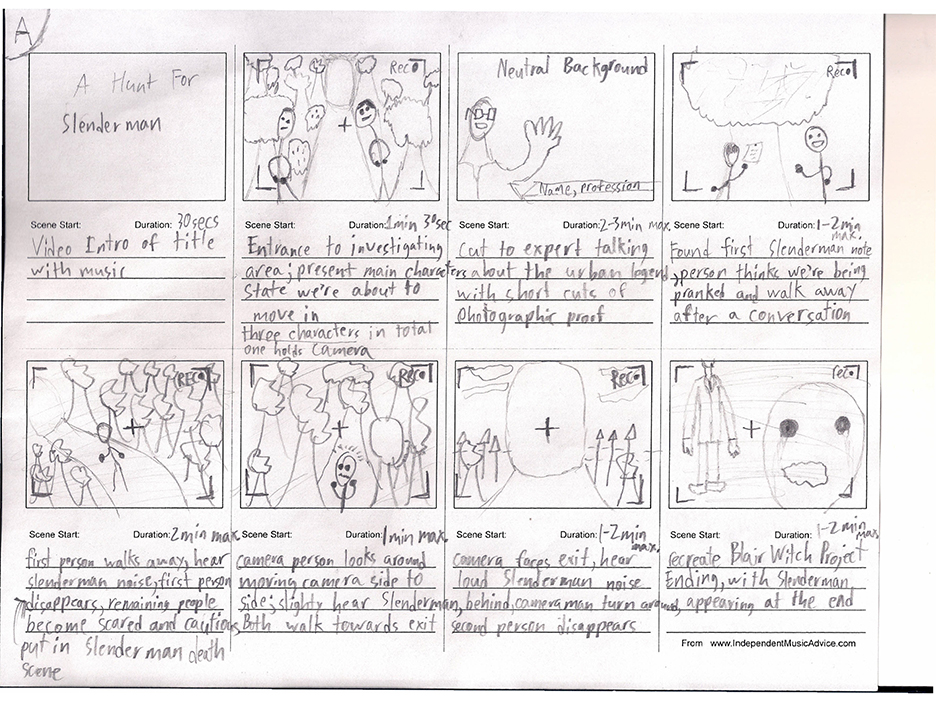 A
A Hunt For
Slenderman
Scene Start: Duration: 30secs
Video Intro of title
with music
REC
Scene Start: Duration: 1min 30sec
Entrance to investigating
area; present main characters
state we're about to
move in
three characters in total
one holds camera
Neutral Background
Name, profession
Scene Start: Duration: 2-3min max.
Cut to expert talking
about the urban legend,
with short cuts of
photographic proof
REC
Scene Start: Duration: 1-2min max.
Found first Slenderman note
person thinks we're being
pranked and walk away
after a conversation
REC
Scene Start: Duration: 2min max
first person walks away, hear
slenderman noise, first person
disappears, remaining people
become scared and cautious
put in Slenderman death
scene
REC
Scene Start: Duration: 1min max
camera person looks around
moving camera side to
side; slighty hear Slenderman,
Both walk towards exit
REC
Scene Start: Duration: 1-2min max.
camera faces exit, hear
loud Slenderman noise
behind, cameraman turn around,
second person disappears
rec
Scene Start: Duration: 1-2min max.
recreate Blair Witch Project
Ending, with Slenderman,
appearing at the end
From www.IndependentMusicAdvice.com